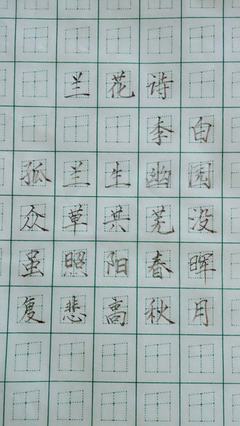 兰花诗
李白
孤兰生幽园
众草共芜没
虽照阳春晖
复悲高秋月